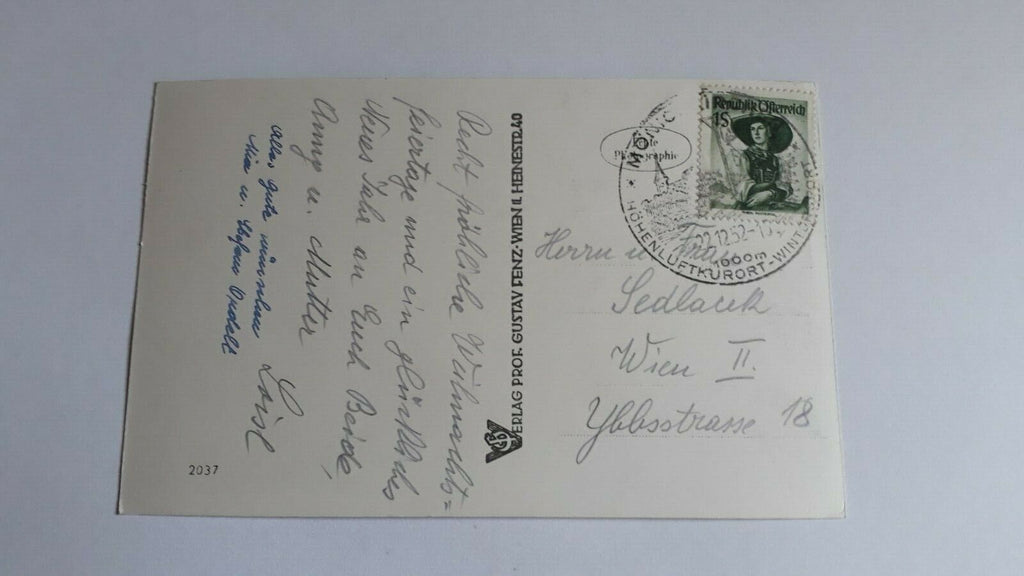 Recht fröhliche Weihnachts=
feiertage und ein glückliches
Neues Jahr an Euch Beide,
Anny u. Mutter
Loisl
Alles gute wünschen
u. Stefan
VERLAG PROF. GUSTAV FENZ·WIEN II. HEINESTR. 40
2037
Echte
Photographie
Republik Österreich
1S
HÖHENLUFTKURORT-WINT
1000m
12.52
Herrn u. Frau
Sedlacek
Wien II.
Ybbsstrasse 18